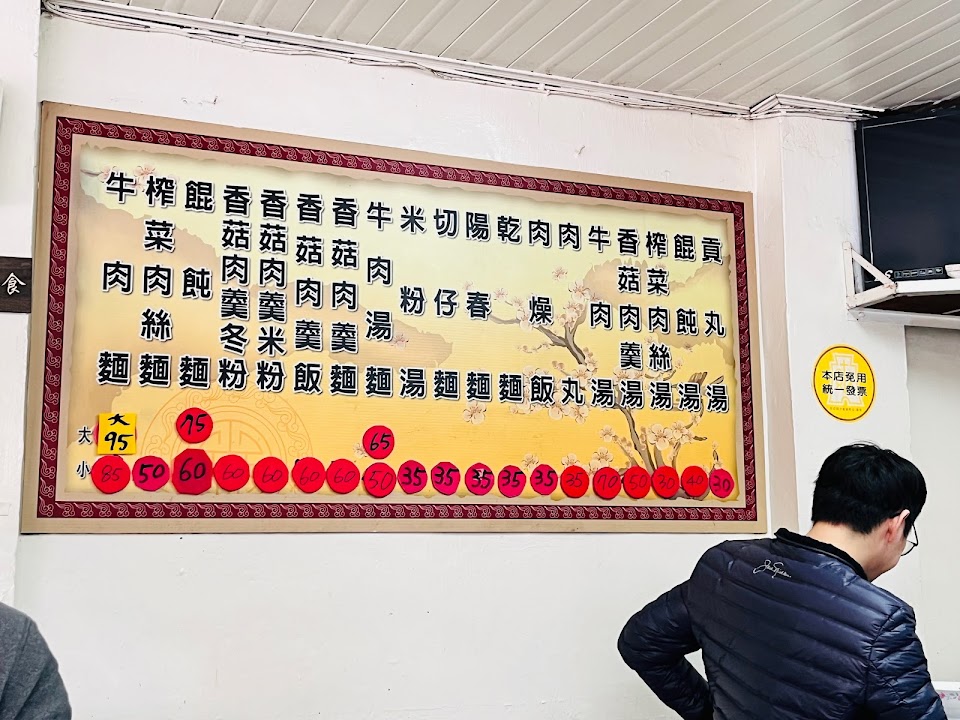 牛肉麵
榨菜肉絲麵
餛飩麵
香菇肉羹冬粉
香菇肉羹米粉
香菇肉羹飯
香菇肉羹麵
牛肉湯麵
米粉湯
切仔麵
陽春麵
乾麵
肉燥飯
肉丸
牛肉湯
香菇肉羹湯
榨菜肉絲湯
餛飩湯
貢丸湯
大 大95 75 65
小 85 50 60 60 60 60 60 50 35 35 35 35 35 35 70 50 30 40 30
食
本店免用
統一發票